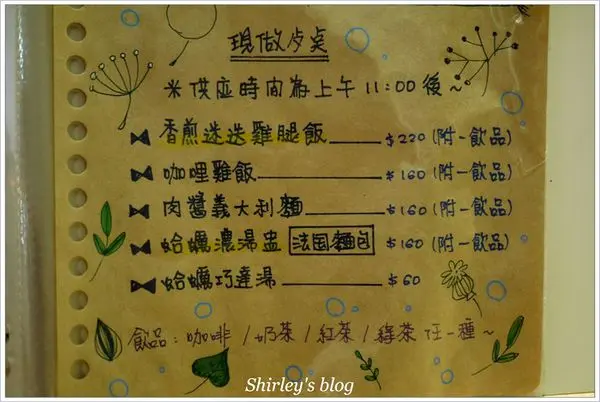 現做歺桌
米供应時間為上午 11:00 後~
香煎迷迭雞腿飯 $220 (附一飲品)
咖哩雞飯 $160 (附一飲品)
肉醬義大利麵 $160 (附一飲品)
蛤蠣濃湯盅 法国麵包 $160 (附一飲品)
蛤蠣巧達湯 $60
飲品:咖啡 / 奶茶 / 紅茶 / 綠茶 任一種~
Shirley's blog